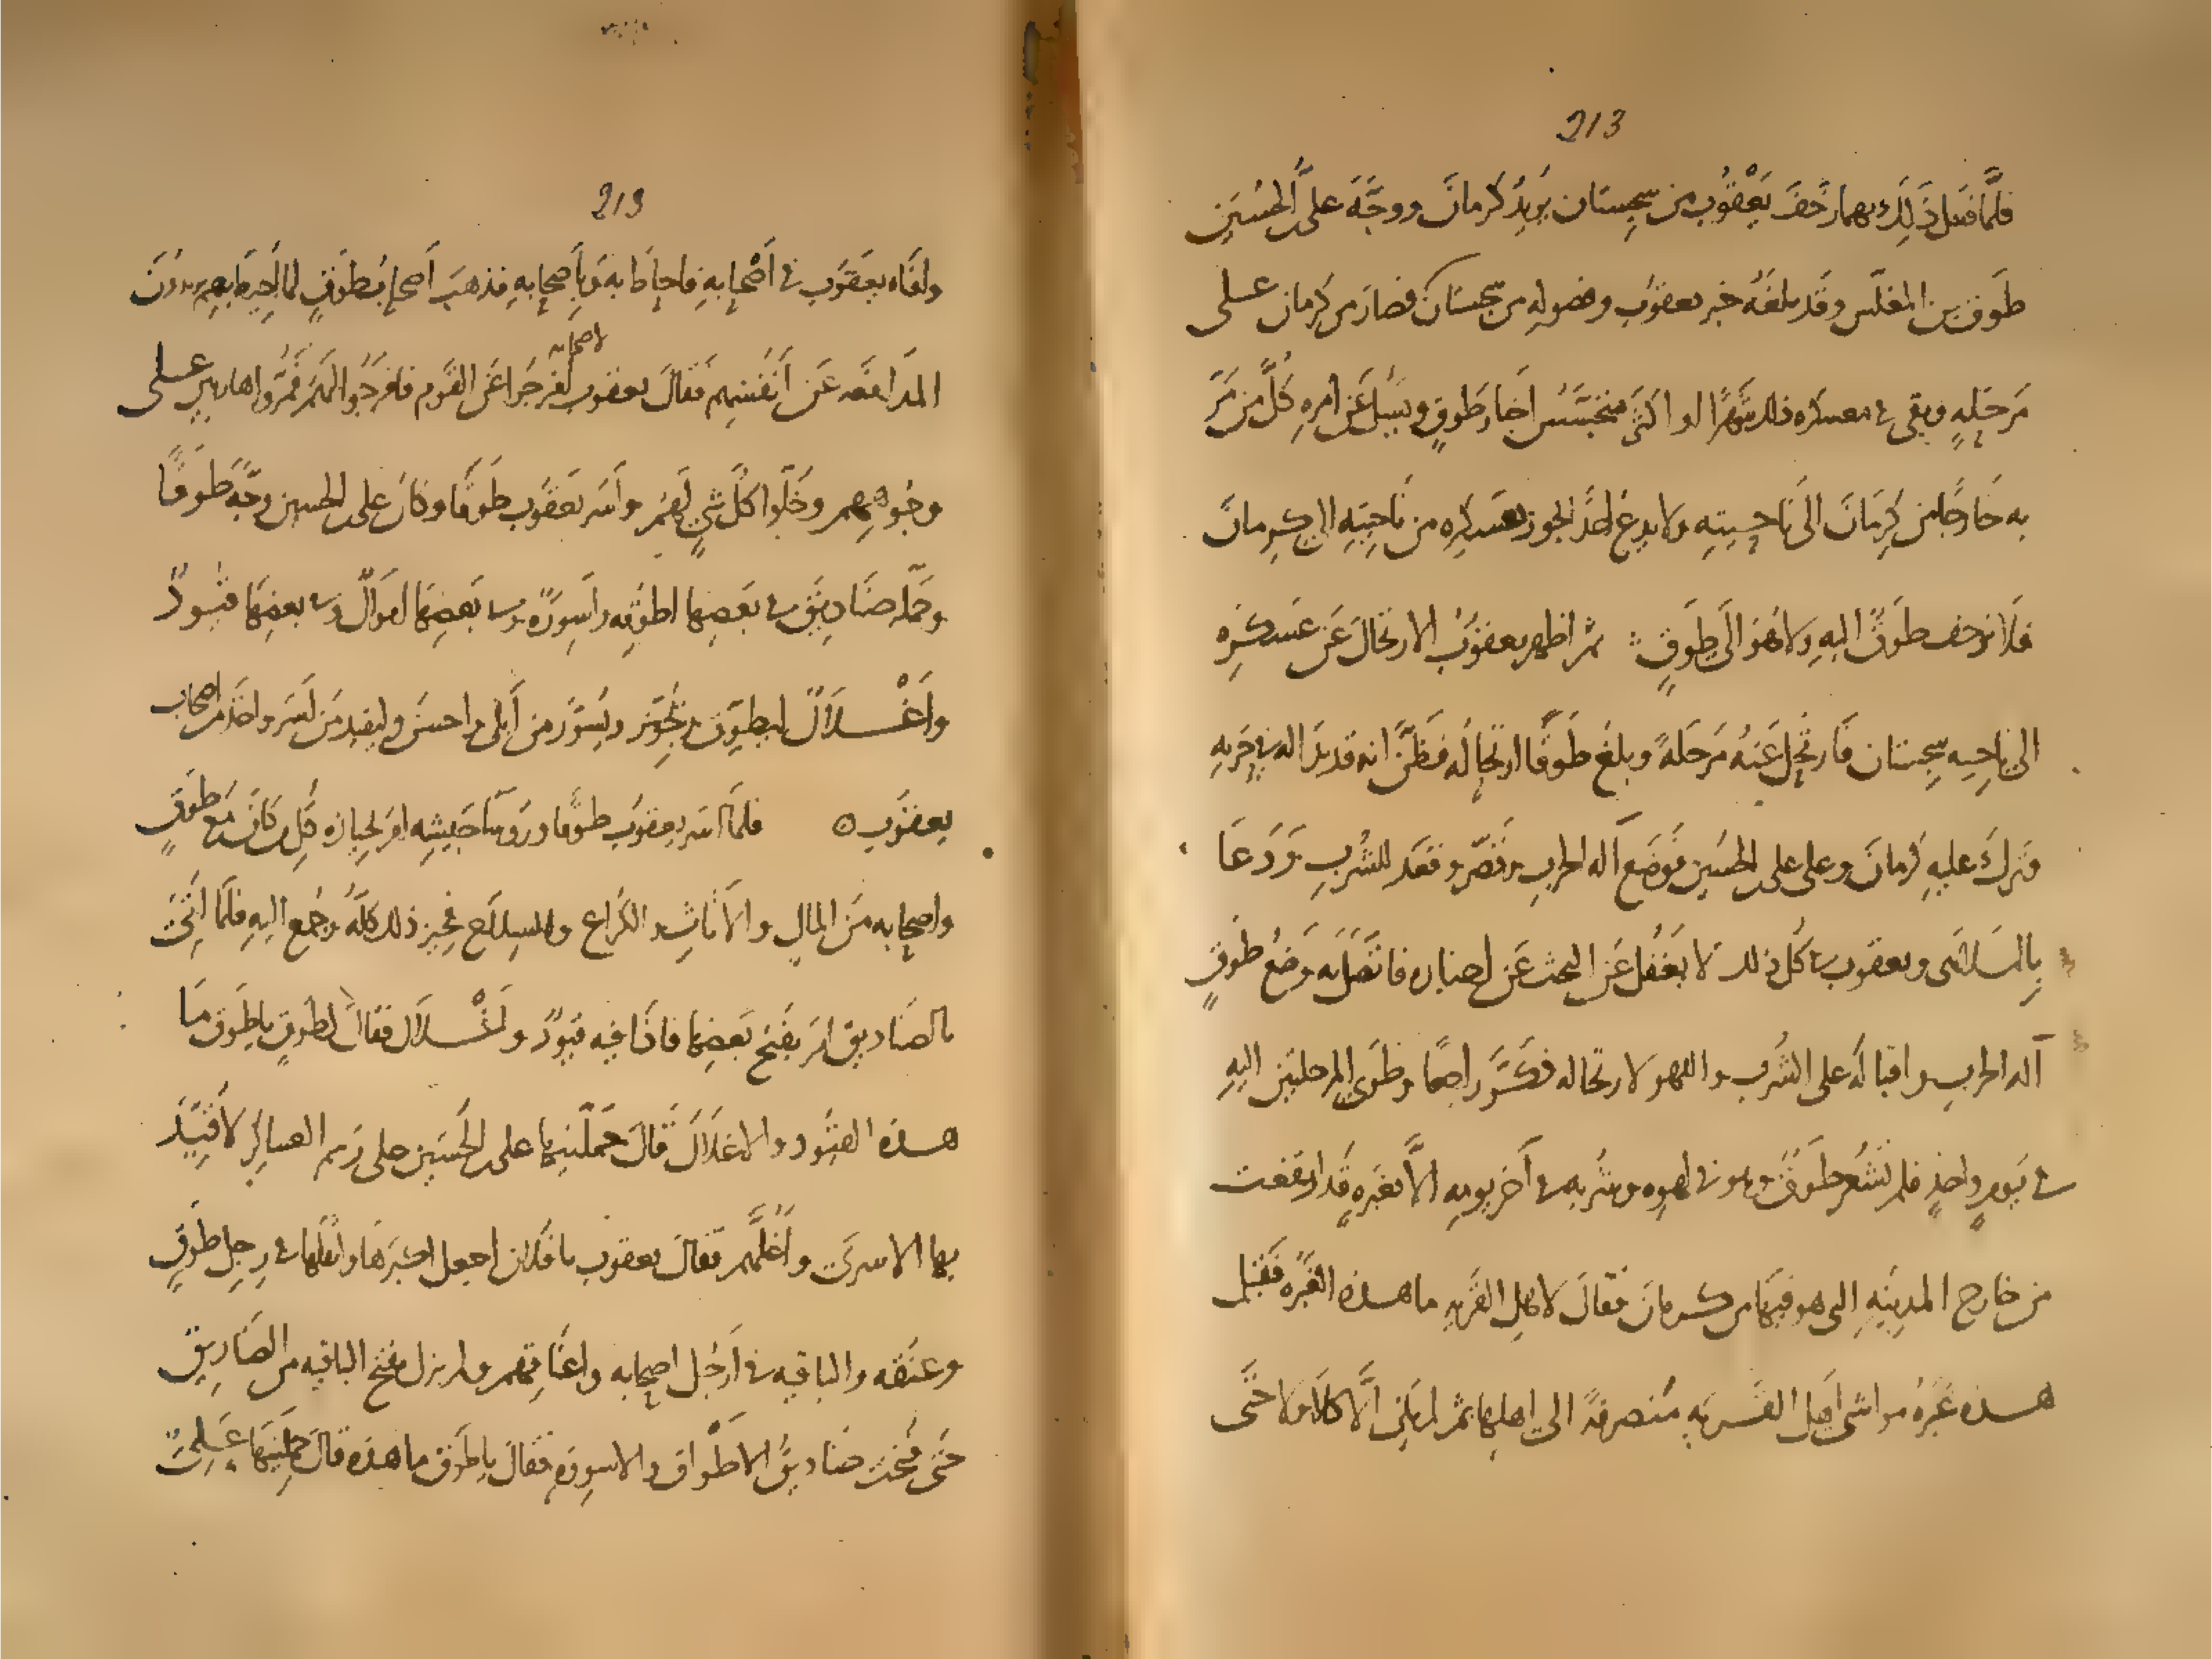 213
فلمّا فعل ذلك بهما زحف يعقوب من سجستان يريد كرمان ووجّه علىّ الحسين
طوق بن المغلّس وقد بلغه خبر يعقوب وفصوله من سجستان فصار من كرمان على
مرحلةٍ وبقى فى معسكره ذلك شهرًا او اكثر يتجسّس اخبار طوقٍ ويسل عن امره كلّ من مرّ
به خارجًا من كرمان الى ناحيته ولا يدع احدًا يجوز بعسكره من ناحيته الى كرمان
فلا يزحف طوقٌ اليه ولا هو الى طوقٍ ثم اظهر يعقوب الارتحال عن عسكره
الى ناحيه سجستان فارتحل عنه مرحلةً وبلغ طوقًا ارتحاله فظنّ انه قد بدا له فى حربه
وترك عليه كرمان وعلى على الحسين فوضع آله الحرب وقصّر وقعد للشرب ودعا
بالملاهى ويعقوب فى كل ذلك لا يغفل عن البحث عن اخباره فاتّصل به وضع طوقٍ
آله الحرب واقباله على الشرب واللهو لارتحاله فكرّ راجعًا وطوى المرحلتين اليه
فى يومٍ واحدٍ فلم يشعر طوقٌ وهو فى لهوه وشربه فى آخر يومه الّا بغبرهٍ قد ارتفعت
من خارج المدينه التى هو فيها من كرمان فقال لاهل القريه ما هذه الغبره فقيل
هذه غبره مواشى اهل القريه منصرفةً الى اهلها ثم لم يكن الّا كلا ولا حتّى
213
وافاه يعقوب فى اصحابه فاحاط به وباصحابه فذهب اصحاب طوقٍ لما احيط بهم يريدون
المدافعه عن انفسهم فقال يعقوب لاصحابه افرجوا عن القوم فافرجوا لهم فمرّوا هاربين على
وجوههم وخلّوا كلّ شىٍ لهم واسر يعقوب طوقًا وكان على الحسين وجّه طوقًا
وحمّله صناديق فى بعضها اطوقه واسوره وفى بعضها اموال وفى بعضها قيودٌ
واغلالٌ ليطوّق ويسوّر من ابلى واحسن وليقيد من اسر واخذ من اصحاب
يعقوب ۞ فلمّا اسر يعقوب طوقًا وروسا جيشه امر بحيازه كلّ ما كان مع طوقٍ
واصحابه من المال والاثاث والكراع والسلاح فحيز ذلك كلّه وجمع اليه فلمّا اتى
بالصناديق امر بفتح بعضها فاذا فيه قيودٌ واغلال فقال لطوقٍ يا طوق ما
هذه القيود والاغلال قال حمّلنيها على الحسين لاقيّد
بها الاسرى واغلّهم فقال يعقوب يا فلان اجعل اكبرها واثقلها فى رجل طوقٍ
وعنقه والباقيه فى ارجل اصحابه واعناقهم ولم يزل يفتح الباقيه من الصناديق
حتى فتحت صناديق الاطواق والاسوره فقال يا طوق ما هذه قال حمّلنيها علىٌّ